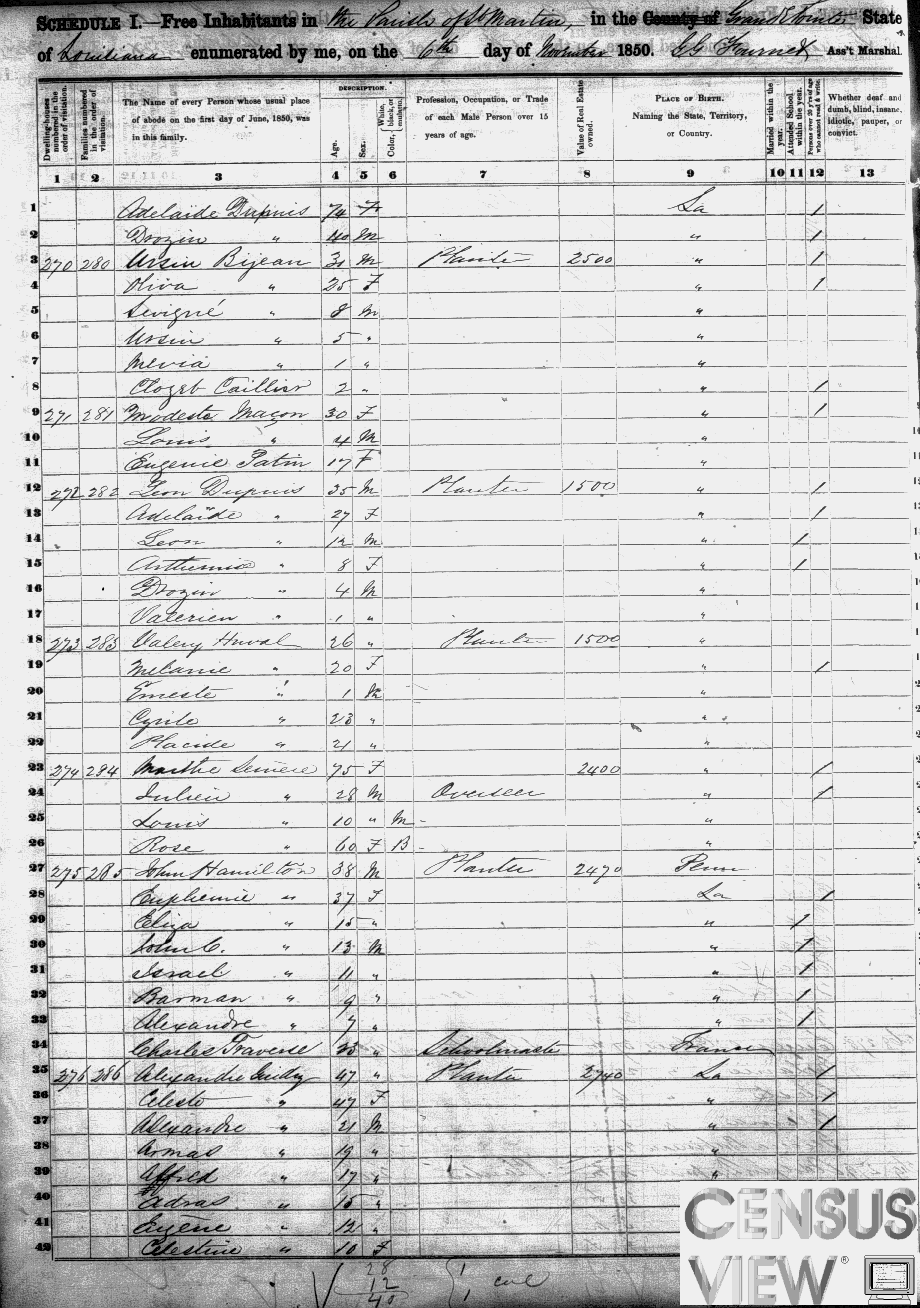 SCHEDULE I.—Free Inhabitants in the Parish of St Martin, in the County of Grand Pointe State
of Louisiana enumerated by me, on the 6th day of November 1850. CG Fournet Ass't Marshal.
Dwelling-houses numbered in the order of visitation.
Families numbered in the order of visitation.
The Name of every Person whose usual place of abode on the first day of June, 1850, was in this family.
DESCRIPTION.
Age.
Sex.
Color, White, black, or mulatto.
Profession, Occupation, or Trade of each Male Person over 15 years of age.
Value of Real Estate owned.
PLACE OF BIRTH. Naming the State, Territory, or Country.
Married within the year.
Attended School within the year.
Persons over 20 y'rs of age who cannot read & write.
Whether deaf and dumb, blind, insane, idiotic, pauper, or convict.
1 2 3 4 5 6 7 8 9 10 11 12 13
1 Adelaïde Dupuis 74 F La /
2 Drozin " 40 M " /
3 270 280 Ursin Bijean 31 M Planter 2500 " /
4 Oliva " 25 F " /
5 Sevigné " 8 M "
6 Ursin " 5 " "
7 Mevia " 1 " "
8 Clozel Caillier 2 " " /
9 271 281 Modeste Maçon 30 F " /
10 Louis " 4 M "
11 Eugenie Patin 17 F "
12 272 282 Leon Dupuis 35 M Planter 1500 " /
13 Adelaïde " 27 F " /
14 Leon " 12 M " /
15 " 8 F " /
16 Drozin " 4 M "
17 Valerien " 1 " "
18 273 283 Valery Huval 26 " Planter 1500 "
19 Melanie " 20 F " /
20 Erneste " 1 M "
21 Cyrile " 23 " "
22 Placide " 21 " "
23 274 284 Marthe Semere 75 F 2400 " /
24 Julien " 28 M Overseer " /
25 Louis " 10 " M - "
26 Rose " 60 F B - "
27 275 285 John Hamilton 38 M Planter 2470 Penn
28 Euphemie " 37 F La /
29 Eliza " 15 " " /
30 John C. " 13 M " /
31 Israel " 11 " " /
32 Barman " 9 " " /
33 Alexandre " 7 " " /
34 Charles Traverse 33 " Schoolmaster France
35 276 286 Alexandre Guidry 47 " Planter 2740 La /
36 Celeste " 47 F " /
37 Alexandre " 21 M " /
38 Armas " 19 " "
39 Alfred " 17 " "
40 Adras " 15 "
41 Eugene " 12 "
42 Celestine " 10 F
28
12
40
1
1 col
CENSUS
VIEW®